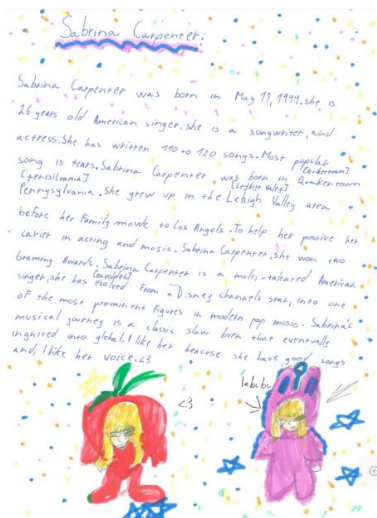 Sabrina Carpenter.
Sabrina Carpenter was born in May 11, 1999. she is
26 years old American singer. she is a songwriter, and
actress. She has written 110 to 120 songs. Most popular
song is tears, Sabrina Carpenter was born in Quakertown
[pensilvania]
Pennysylvania. She grew up in the Lehigh Valley area
before her Family movde to Los Angels. To help her
carier in acting and music. Sabrina Carpenter, she won two
Grammy Awards. Sabrina Carpenter is a multi-talented American
singer, she has evolved from a Disney channels star, into one
of the most prominent figures in modern pop music. Sabrina's
musical journey is a classic slow burn that eventually
ingnited into global. I like her beacuse she have good songs
and, I like her voice. <3
<3
lababu